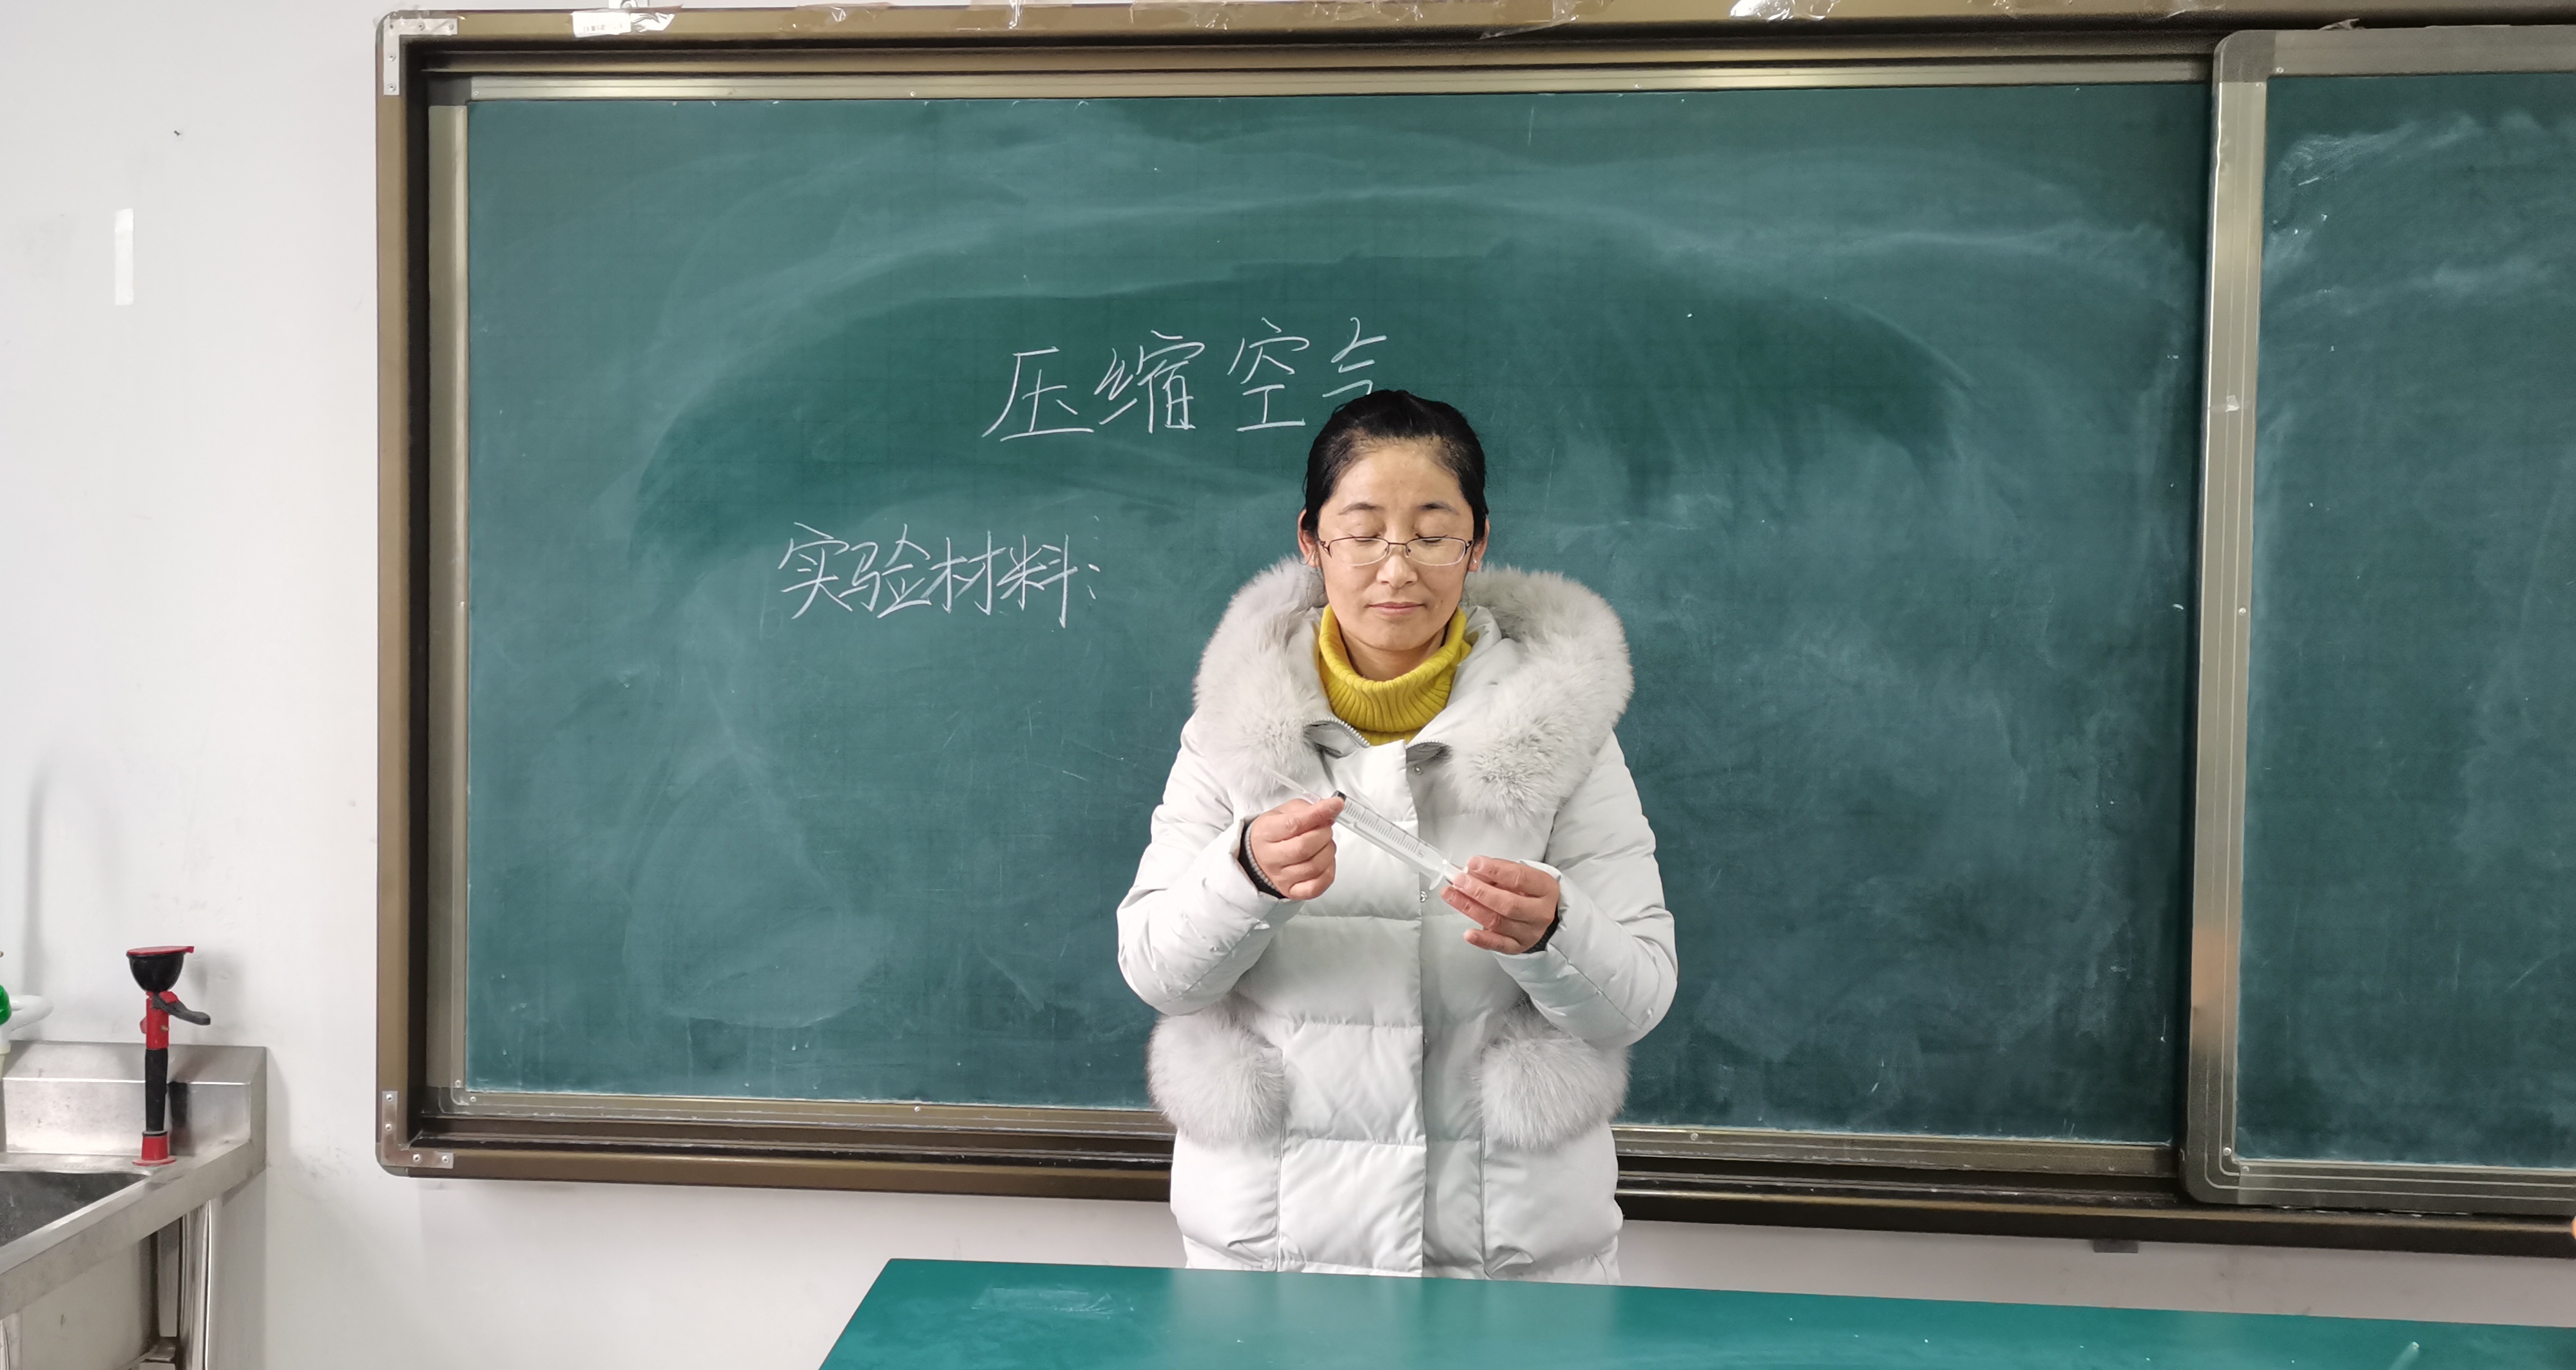 压缩空气
实验材料：